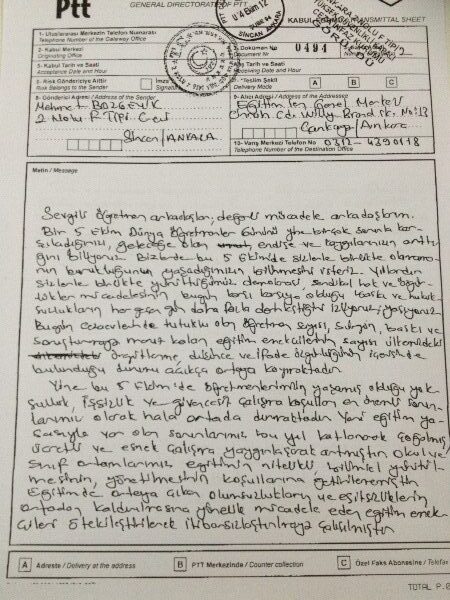 Ptt
GENERAL DIRECTORATE OF PTT
KABUL TRANSMITTAL SHEET
1- Uluslararası Merkez Telefon Numarası
Telephone Number of the Gateway Office
2- Kabul Merkezi
Originating Office
5- Kabul Tarih ve Saati
Acceptance Date and Hour
6- Risk Göndericiye Aittir
Risk Belongs to the Sender
İmza
Signature
8- Gönderici Adresi / Address of the Sender
Mehmet BOZGEYİK
2 Nolu F Tipi Cezaevi
Sincan/ANKARA
SİNCAN ANKARA
Doküman No
0494
Tarih ve Saati
Receiving Date and Hour
*Teslim Şekli
Delivery Mode
A B C
9- Alıcı Adresi / Address of the Addressee
Eğitim Sen Genel Merkezi
Cinnah Cd. Willy Brandt sk. No:13
Çankaya/Ankara
10- Varış Merkezi Telefon No 0312-4390118
Telephone Number of the Destination Office
Metin / Message
Sevgili öğretmen arkadaşlar, değerli mücadele arkadaşlarım.
Bir 5 Ekim Dünya Öğretmenler Gününü yine birçok sorunla kar-
şıladığınızı, geleceğe olan endişe ve kaygılarınızın arttı-
ğını biliyoruz. Bizlerde bu 5 Ekim'de sizlerle birlikte olamama-
nın burukluğunun yaşadığımızın bilinmesini isteriz. Yıllardır
sizlerle birlikte yürüttüğümüz demokrasi, sendikal hak ve özgür-
lükler mücadelesinin bugün karşı karşıya olduğu baskı ve hukuk-
suzlukların her geçen gün daha fazla derinleştiğini izliyoruz, yaşıyoruz.
Bugün cezaevlerinde tutuklu olan öğretmen sayısı, sürgün, baskı ve
soruşturmaya maruz kalan eğitim emekçilerinin sayısı ülkemizdeki
örgütlenme, düşünce ve ifade özgürlüğünün içerisinde
bulunduğu durumu açıkça ortaya koymaktadır.
Yine bu 5 Ekim'de öğretmenlerimizin yaşamış olduğu yok-
sulluk, işsizlik ve güvencesiz çalışma koşulları en önemli sorun-
larımız olarak hala ortada durmaktadır. Yeni eğitim ya-
sasıyla var olan sorunlarımız bu yıl katlanarak çoğalmış,
ücretli ve esnek çalışma yaygınlaşarak artmıştır. Okul ve
sınıf ortamlarımız eğitimin nitelikli, bilimsel yürütül-
mesinin, yönetilmesinin koşullarına getirilememiştir.
Eğitimde ortaya çıkan olumsuzlukların ve eşitsizliklerin
ortadan kaldırılmasına yönelik mücadele eden eğitim emek-
çileri ötekileştirilerek itibarsızlaştırılmaya çalışılmıştır.
A Adreste / Delivery at the address
B PTT Merkezinde / Counter collection
C Özel Faks Abonesine / Telefax
TOTAL P.0